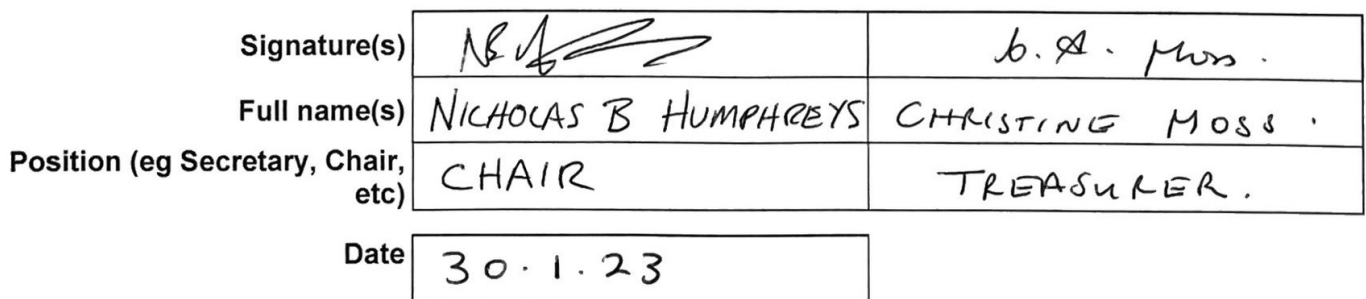 Signature(s) C. A. Moss.
Full name(s) NICHOLAS B HUMPHREYS CHRISTINE MOSS.
Position (eg Secretary, Chair, etc) CHAIR TREASURER.
Date 30.1.23